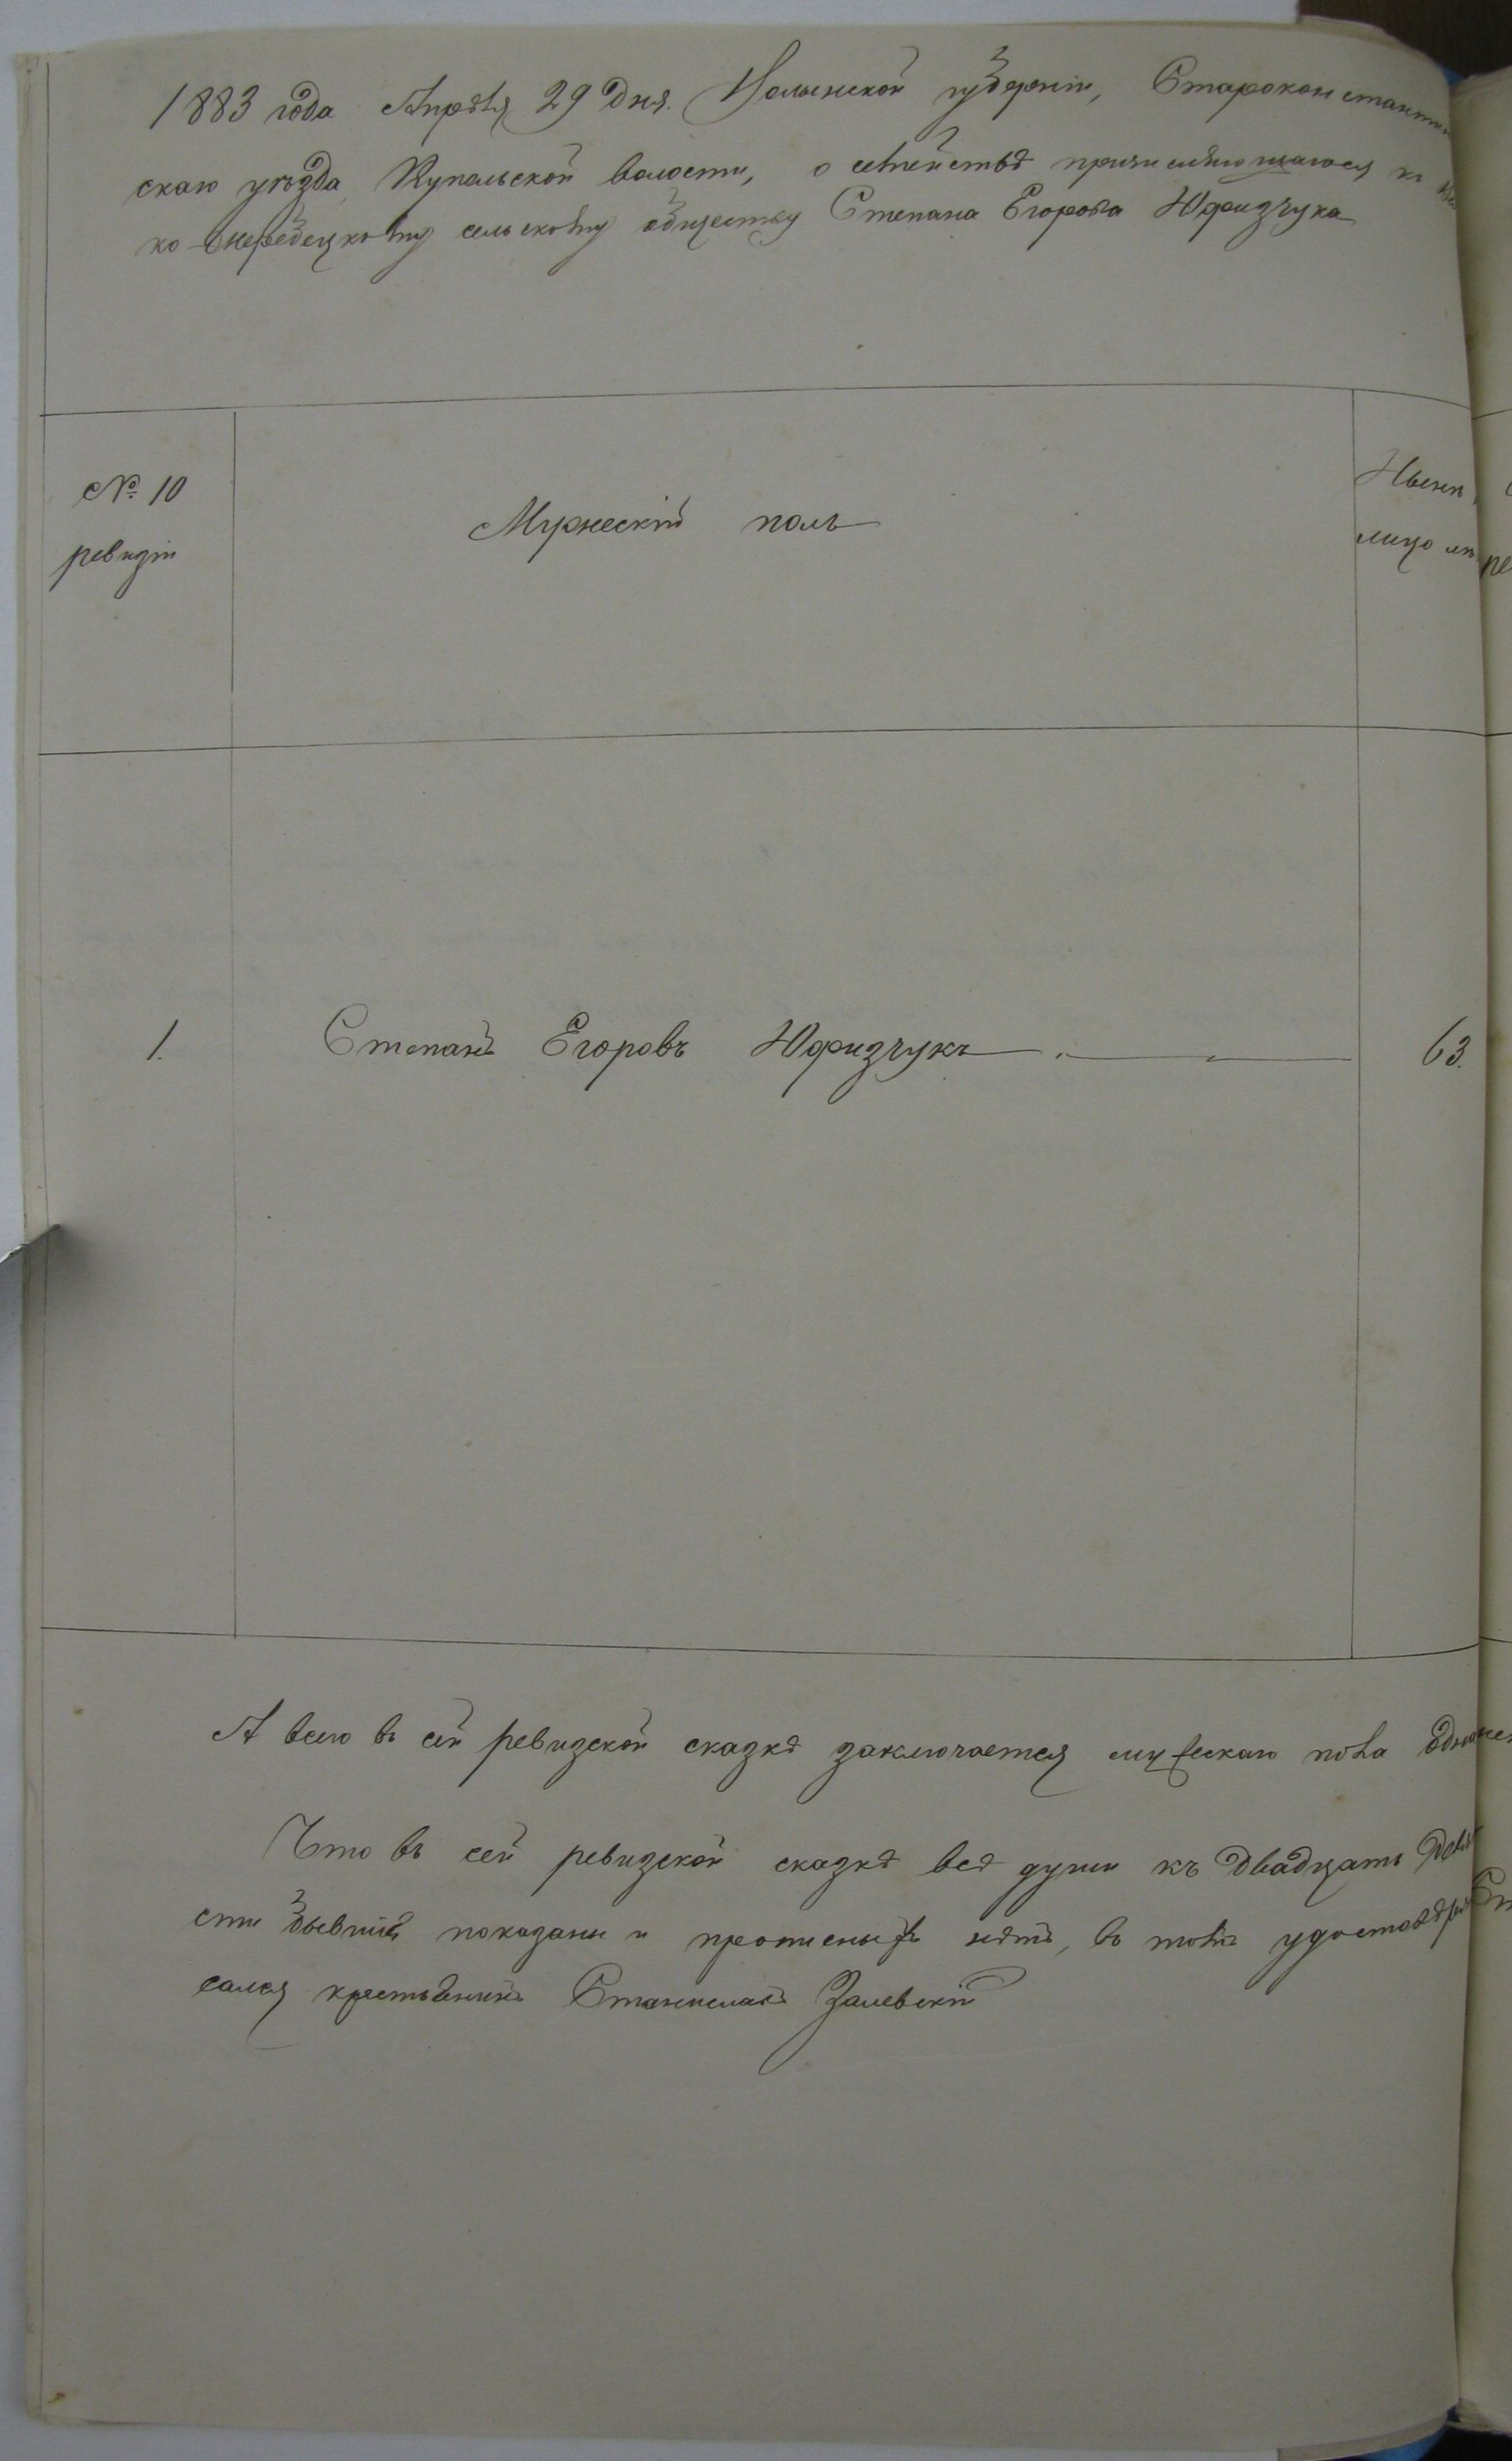 1883 года Апрѣля 29 дня. Волынской губерніи, Староконстантин
скаго уѣзда Купельской волости, о семействѣ причисляющагося къ
сельскому обществу Степана Егорова Юфизчука
№ 10
ревизіи
Мужескій полъ
Нынѣ
лицо
1. Степанъ Егоровъ Юфизчукъ 63.
А всего въ сей ревизской сказкѣ заключается мужескаго пола одна
Что въ сей ревизской сказкѣ всѣ души къ двадцать
сти показаны и прописныхъ нѣтъ, въ томъ
сался крестьянинъ Станиславъ Залевскій